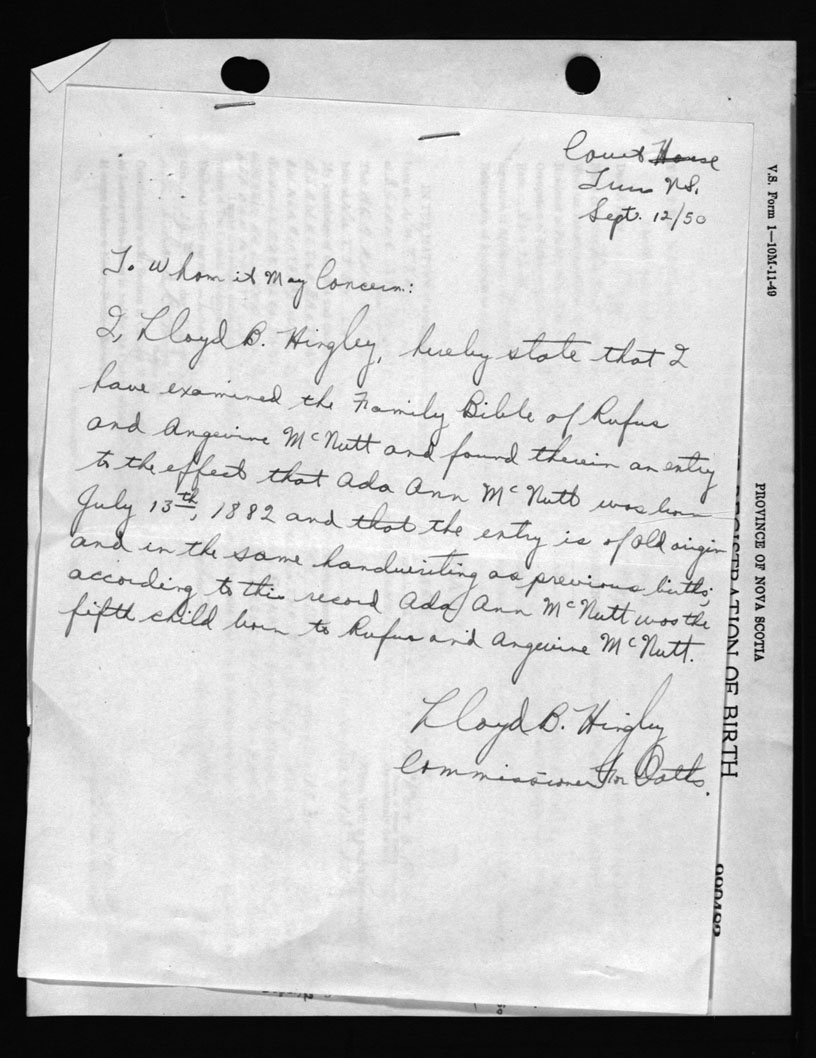 Court House
Truro N.S.
Sept. 12/50
To Whom it May Concern:
I, Lloyd B. Hingley, hereby state that I
have examined the Family Bible of Rufus
and Angevine McNutt and found therein an entry
to the effect that Ada Ann McNutt was born
July 13th, 1882 and that the entry is of old origin
and in the same handwriting as previous births;
according to this record Ada Ann McNutt was the
fifth child born to Rufus and Angevine McNutt.
Lloyd B. Hingley
Commissioner for Oaths.
V.S. Form 1—10M-11-49
PROVINCE OF NOVA SCOTIA
REGISTRATION OF BIRTH